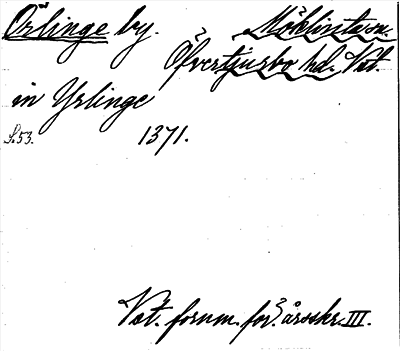 Örlinge by. Möklinta sn.
Öfvertjurbo hd. Vät.
in Yrlinge
S.53. 1371.
Vät. fornm. för. årsskr. III.